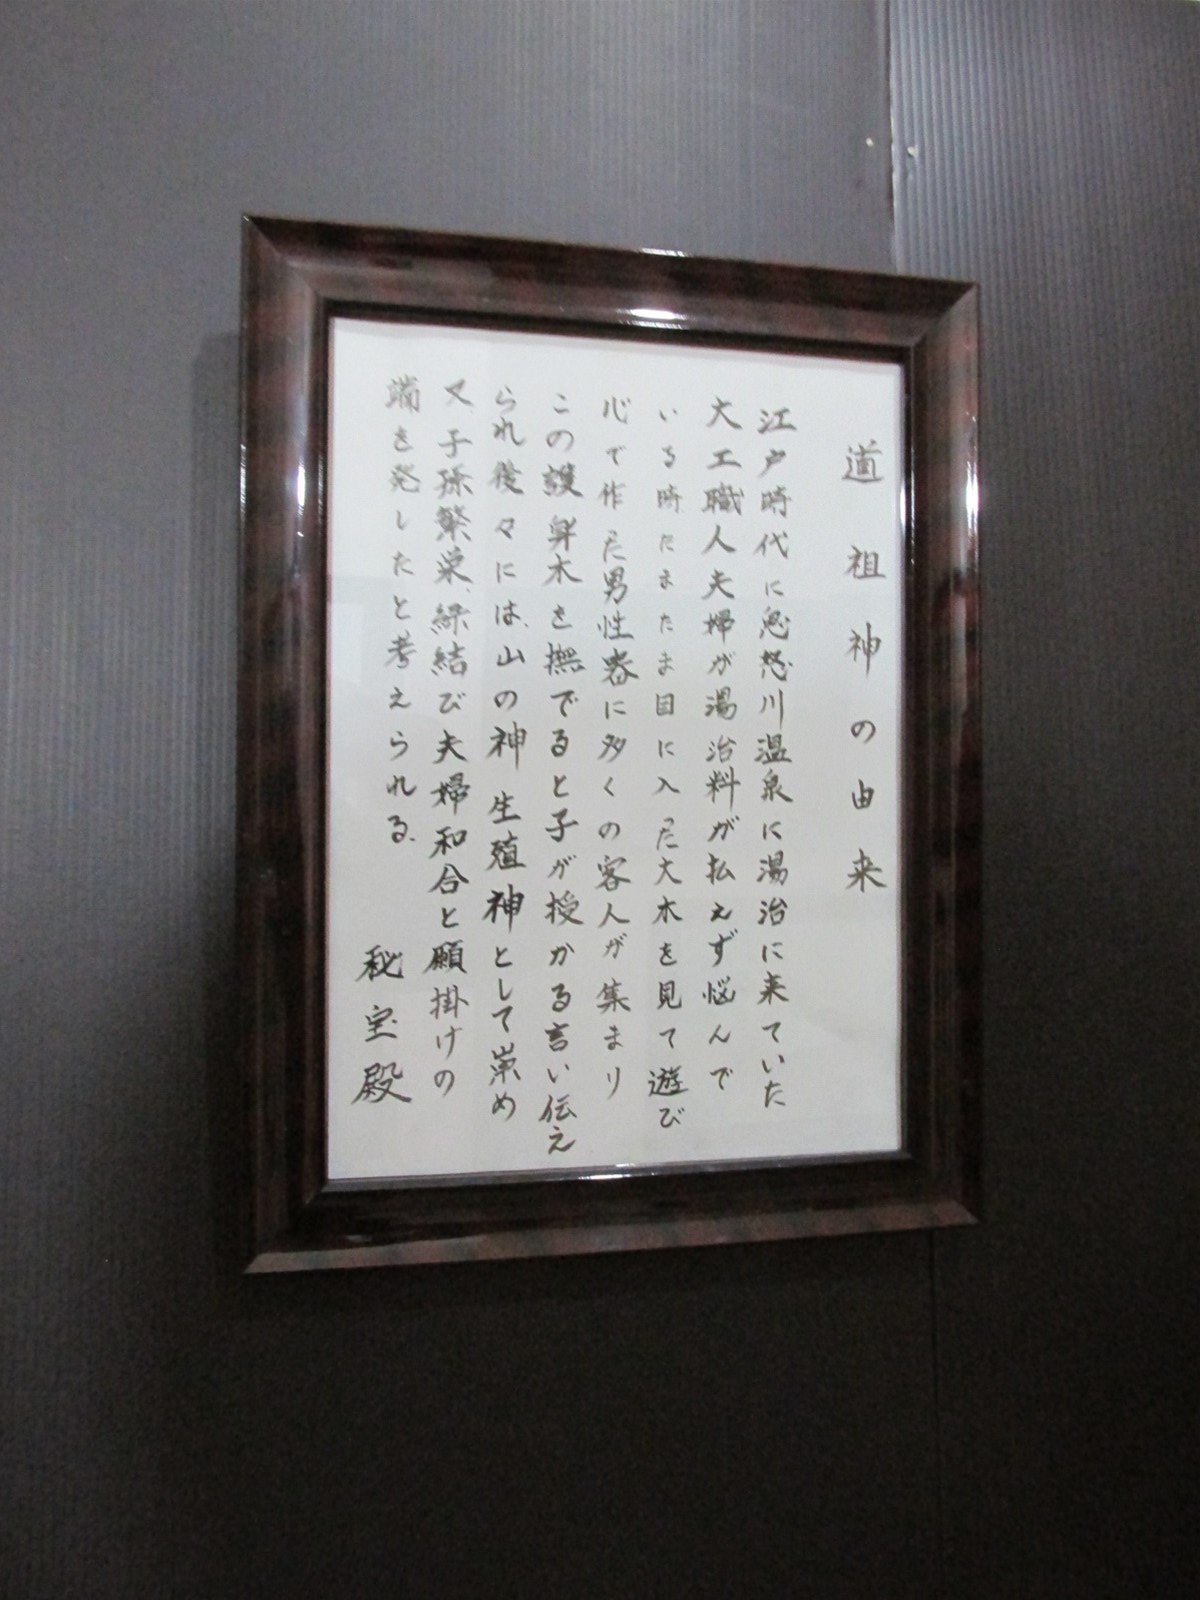 道祖神の由来
江戸時代に鬼怒川温泉に湯治に来ていた
大工職人夫婦が湯治料が払えず悩んで
いる時たまたま目に入った大木を見て遊び
心で作た男性器に多くの客人が集まり
この護身木を撫でると子が授かる言い伝え
られ後々には、山の神 生殖神として崇め
又、子孫繁栄、縁結び夫婦和合と願掛けの
端を発したと考えられる、
秘宝殿